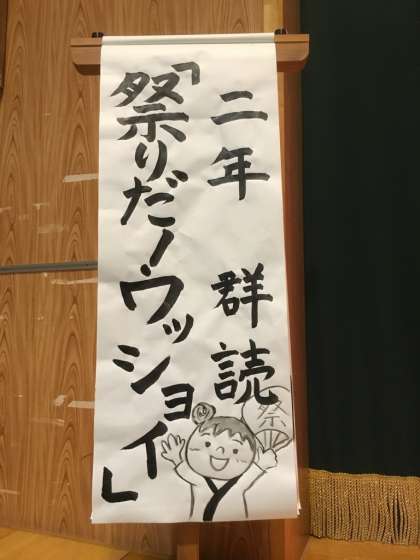 二年 群読
「祭りだ！ウッショイ」
祭